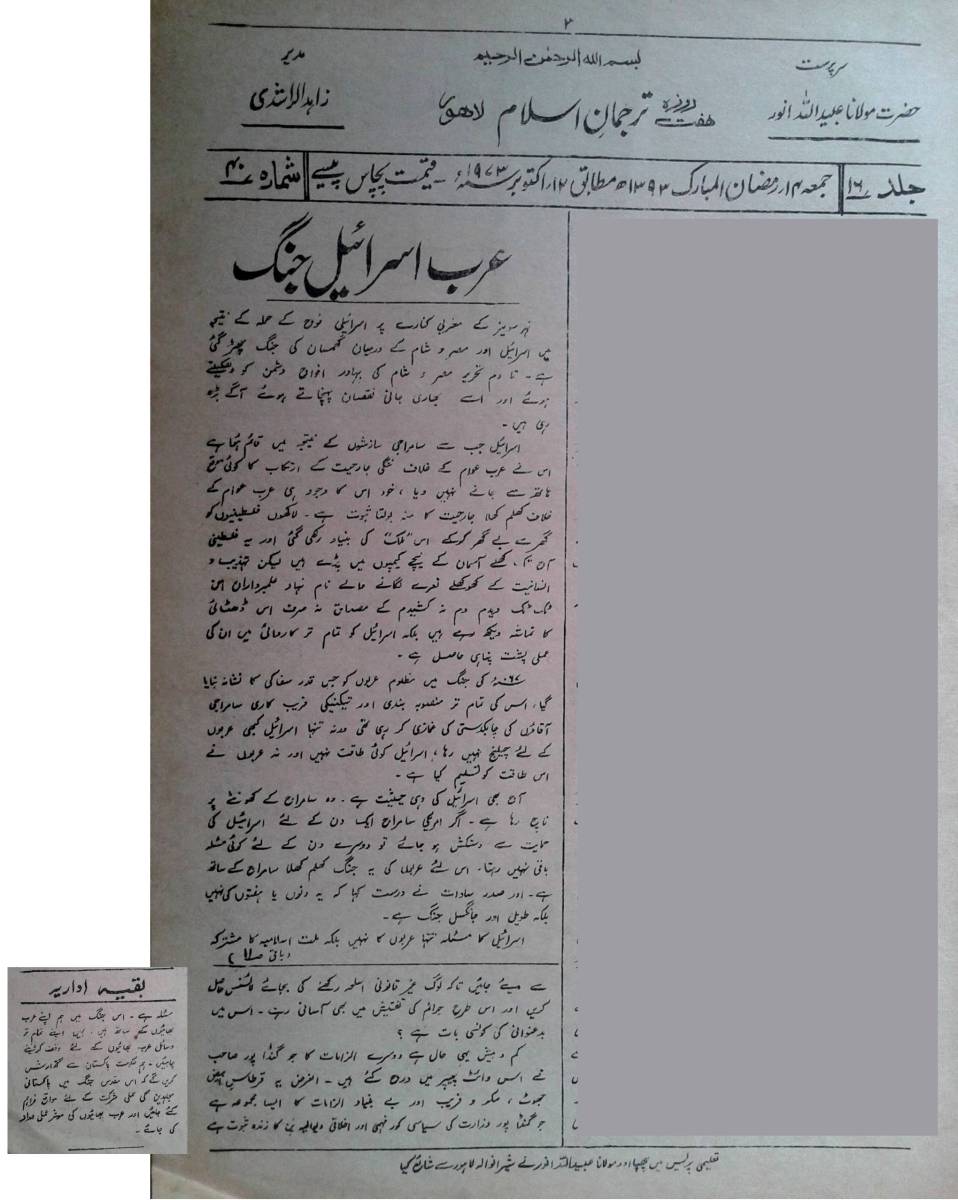 ۲
بسم اللہ الرحمٰن الرحیم
سرپرست
حضرت مولانا عبید اللہ انور
ہفت روزہ ترجمانِ اسلام لاہور
مدیر
زاہد الراشدی
جلد ۱۶
جمعہ ۱۴ رمضان المبارک ۱۳۹۳ھ مطابق ۱۲ اکتوبر سنہ ۱۹۷۳ء - قیمت پچاس پیسے
شمارہ ۴۰
عرب اسرائیل جنگ
نہر سویز کے مغربی کنارے پر اسرائیلی فوج کے حملہ کے نتیجہ
میں اسرائیل اور مصر و شام کے درمیان گھمسان کی جنگ چھڑ گئی
ہے۔ تا دم تحریر مصر و شام کی بہادر افواج دشمن کو دھکیلتے
ہوئے اور اسے بھاری جانی نقصان پہنچاتے ہوئے آگے بڑھ
رہی ہیں۔
اسرائیل جب سے سامراجی سازشوں کے نتیجہ میں قائم ہوا ہے
اس نے عرب عوام کے خلاف ننگی جارحیت کے ارتکاب کا کوئی موقع
ہاتھ سے جانے نہیں دیا، خود اس کا وجود ہی عرب عوام کے
خلاف کھلم کھلا جارحیت کا منہ بولتا ثبوت ہے۔ لاکھوں فلسطینیوں کو
گھر سے بے گھر کرکے اس "ملک" کی بنیاد رکھی گئی اور یہ فلسطینی
آج تک کھلے آسمان کے نیچے کیمپوں میں پڑے ہیں لیکن تہذیب و
انسانیت کے کھوکھلے نعرے لگانے والے نام نہاد علمبرداران امن
ٹک ٹک دیدم دم نہ کشیدم کے مصداق نہ صرف اس ڈھٹائی
کا تماشہ دیکھ رہے ہیں بلکہ اسرائیل کو تمام تر کارروائی میں ان کی
عملی پشت پناہی حاصل ہے۔
۶۷ء کی جنگ میں مظلوم عربوں کو جس قدر سفاکی کا نشانہ بنایا
گیا، اس کی تمام تر منصوبہ بندی اور تیکنیکی فریب کاری سامراجی
آقاؤں کی چابکدستی کی غمازی کر رہی تھی ورنہ تنہا اسرائیل کبھی عربوں
کے لئے چیلنج نہیں رہا، اسرائیل کوئی طاقت نہیں اور نہ عربوں نے
اس طاقت کو تسلیم کیا ہے۔
آج بھی اسرائیل کی وہی حیثیت ہے۔ وہ سامراج کے کھونٹے پر
ناچ رہا ہے۔ اگر امریکی سامراج ایک دن کے لئے اسرائیل کی
حمایت سے دستکش ہو جائے تو دوسرے دن کے لئے کوئی مسئلہ
باقی نہیں رہتا۔ اس لئے عربوں کی یہ جنگ کھلم کھلا سامراج کے ساتھ
ہے۔ اور صدر سادات نے درست کہا کہ یہ دنوں یا ہفتوں کی نہیں
بلکہ طویل اور جانگسل جنگ ہے۔
اسرائیل کا مسئلہ تنہا عربوں کا نہیں بلکہ ملت اسلامیہ کا مشترکہ
(باقی ص ۱۱ پر)
سے دیئے جائیں تاکہ لوگ غیر قانونی اسلحہ رکھنے کی بجائے لائسنس حاصل
کریں اور اس طرح جرائم کی تفتیش میں بھی آسانی رہے۔ اس میں
بدعنوانی کی کونسی بات ہے؟
کم و بیش یہی حال ہے دوسرے الزامات کا جو گنڈا پور صاحب
نے اس وائٹ پیپر میں درج کئے ہیں۔ الغرض یہ قرطاس ابیض
جھوٹ، مکر و فریب اور بے بنیاد الزامات کا ایسا مجموعہ ہے
جو گنڈا پور وزارت کی سیاسی کور فہمی اور اخلاقی دیوالیہ پن کا زندہ ثبوت ہے
بقیہ اداریہ
مسئلہ ہے۔ اس جنگ میں ہم اپنے عرب
بھائیوں کے ساتھ ہیں۔ اپنے تمام تر
وسائل عرب بھائیوں کے لئے وقف کر دینے
چاہئیں۔ ہم حکومت پاکستان سے گذارش
کریں گے کہ اس مقدس جنگ میں پاکستانی
مجاہدین کی عملی شرکت کے لئے مواقع فراہم
کئے جائیں اور عرب بھائیوں کی موثر عملی امداد
کی جائے۔
تعلیمی پریس میں چھپا اور مولانا عبید اللہ انور نے شیرانوالہ لاہور سے شائع کیا